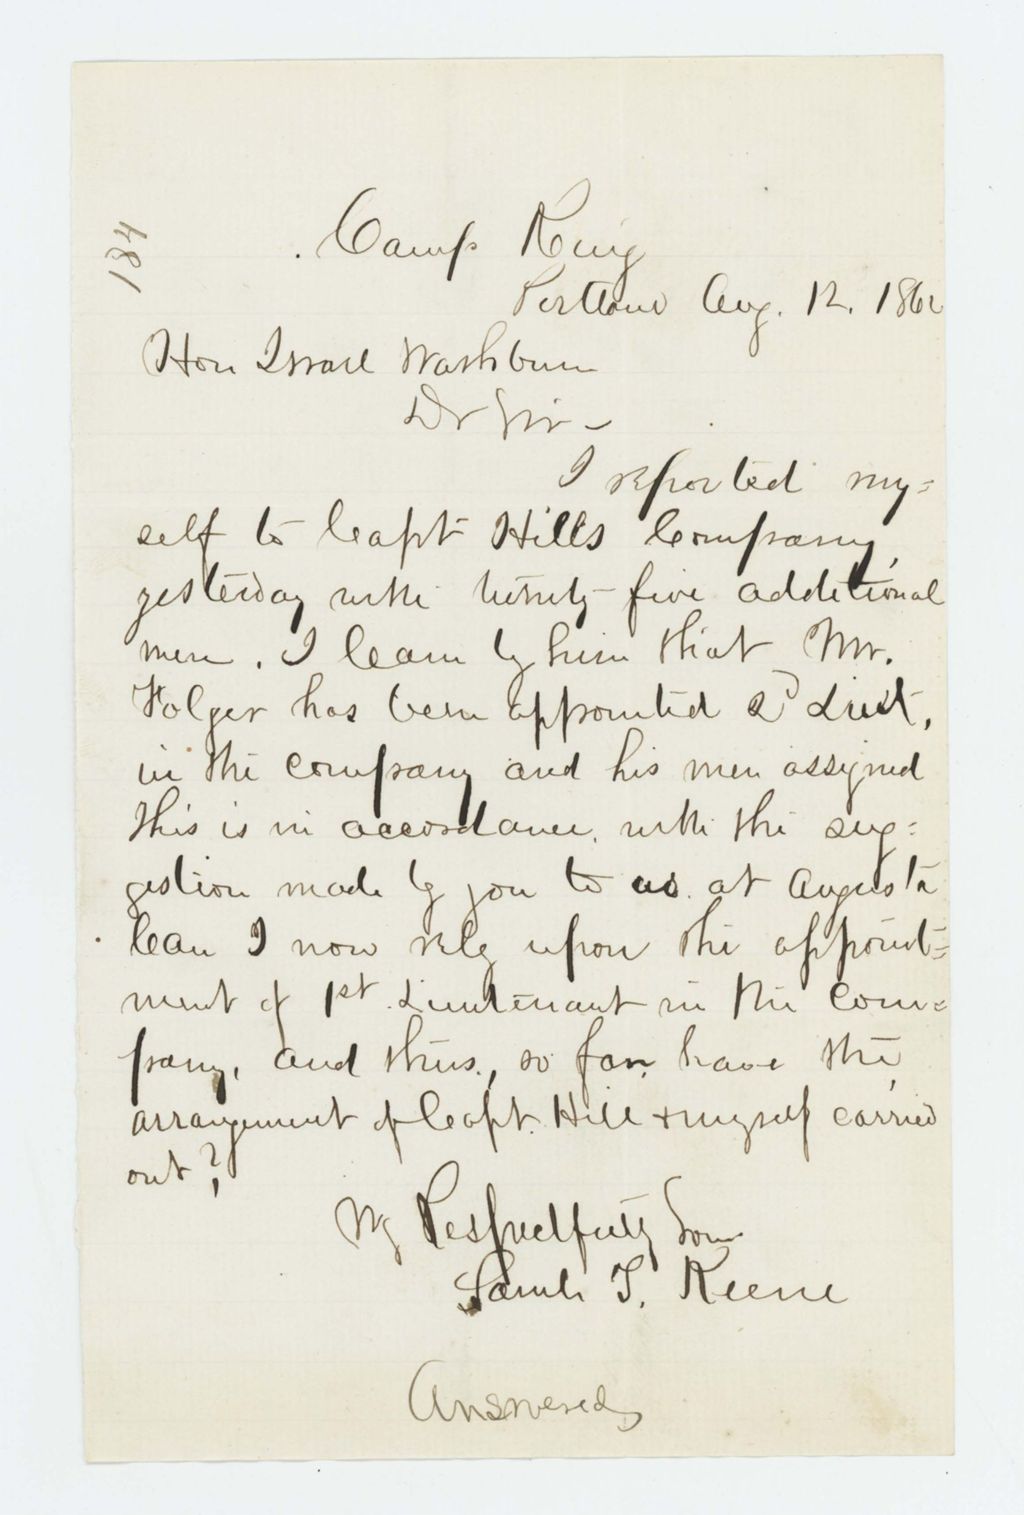 184
Camp King
Portland Aug. 12. 1862
Hon Israel Washburn
Dr Sir –
I reported my=
self to Capt Hills Company,
yesterday with twenty-five additional
men. I learn by him that Mr.
Folger has been appointed 2d Lieut,
in the company and his men assigned
this is in accordance, with the sug=
gestion made by you to us. at Augusta
Can I now rely upon the appoint=
ment of 1st Lieutenant in the Com=
pany, and thus, so far, have the,
arrangement of Capt. Hill & myself carried
out?
Vy Respectfully Your
Saml. T. Keene
Answered